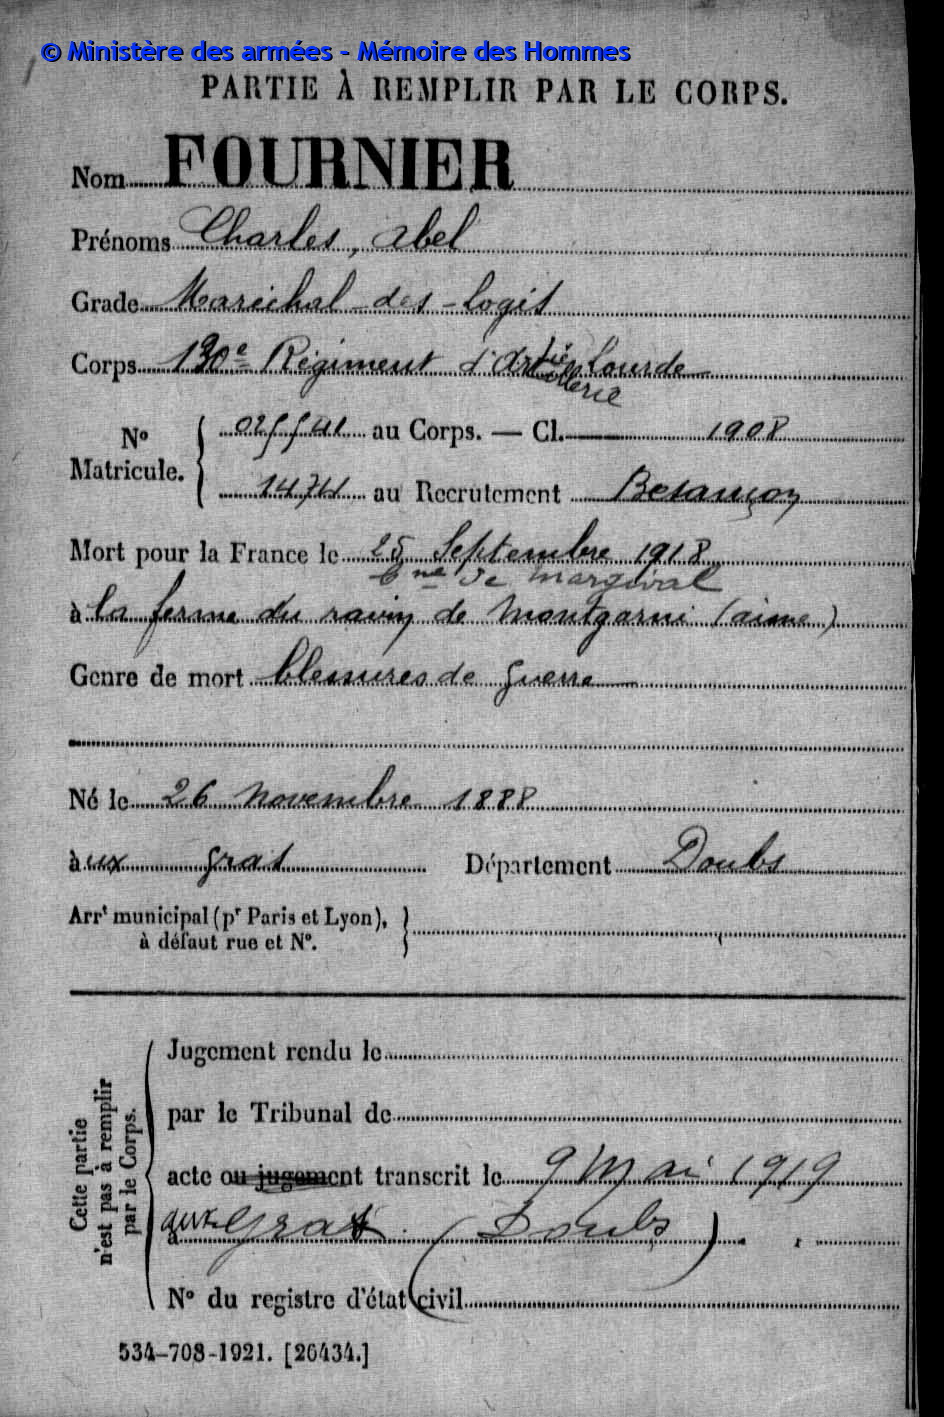 © Ministère des armées - Mémoire des Hommes
PARTIE À REMPLIR PAR LE CORPS.
Nom FOURNIER
Prénoms Charles, Abel
Grade Maréchal-des-logis
Corps 130e Régiment d'Artillerie Lourde
N° Matricule. au Corps. — Cl. 1908
1474 au Recrutement Besançon
Mort pour la France le 25 Septembre 1918
Cne de Margival
à la ferme du ravin de Montgarni (aisne)
Genre de mort blessures de guerre
Né le 26 novembre 1888
à ux gras Département Doubs
Arrt municipal (pr Paris et Lyon),
à défaut rue et N°.
Cette partie
n'est pas à remplir
par le Corps.
Jugement rendu le
par le Tribunal de
acte ou jugement transcrit le 9 Mai 1919
à aux Gras (Doubs)
N° du registre d'état civil
534-708-1921. [26434.]